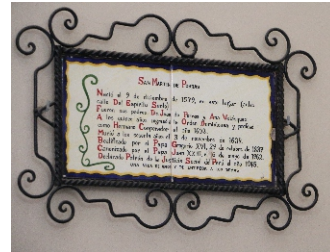 San Martin de Porres
Nació el 9 de diciembre de 1579, en este lugar (calle
calle Del Espiritu Santo)
Fueron sus padres Dn Juan de Porres y Ana Velázquez
A los quince años ingresó a la Orden Dominicana y profesa
como Hermano Cooperador el año 1603.
Murió a los sesenta años el 3 de noviembre de 1639.
Beatificado por el Papa Gregorio XVI, 29 de octubre de 1837
Canonizado por el Papa Juan XXIII, el 6 de mayo de 1962.
Declarado Patrón de la Justicia Social del Perú el año 1965.